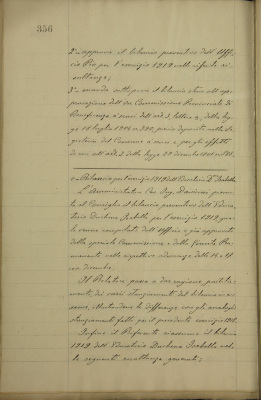 356
2° approva il bilancio preventivo dell'Uffi-
cio Pio per l'esercizio 1912 nelle cifre
;
3° manda sottoporsi il bilancio stesso all'ap-
provazione della Commissione Provinciale di
Beneficenza a sensi dell'art. 3 lettera della leg-
ge 18 luglio 1904 n. 390, previo deposito nella Se-
greteria del Comune a sensi e per gli effetti
di cui all'art. 2 della legge
Bilancio per l'esercizio 1912 dell'Educatorio D. Isabella
L'Amministratore Cav. Avv. presen-
ta al Consiglio il bilancio preventivo dell'Educa-
torio Duchessa Isabella per l'esercizio 1912 qua-
le venne compilato dall'Ufficio e già approvato
dalla speciale Commissione e dalla Giunta Per-
manente nelle rispettive adunanze delle 16 e
dicembre.
Il Relatore passa a dar ragione partita-
mente dei varii stanziamenti del bilancio
, illustrandone le differenze cogli analoghi
stanziamenti fatti per il precedente esercizio 1911.
Infine il Riferente riassume il bilancio
1912 dell'Educatorio Duchessa Isabella nel-
le seguenti risultanze generali: